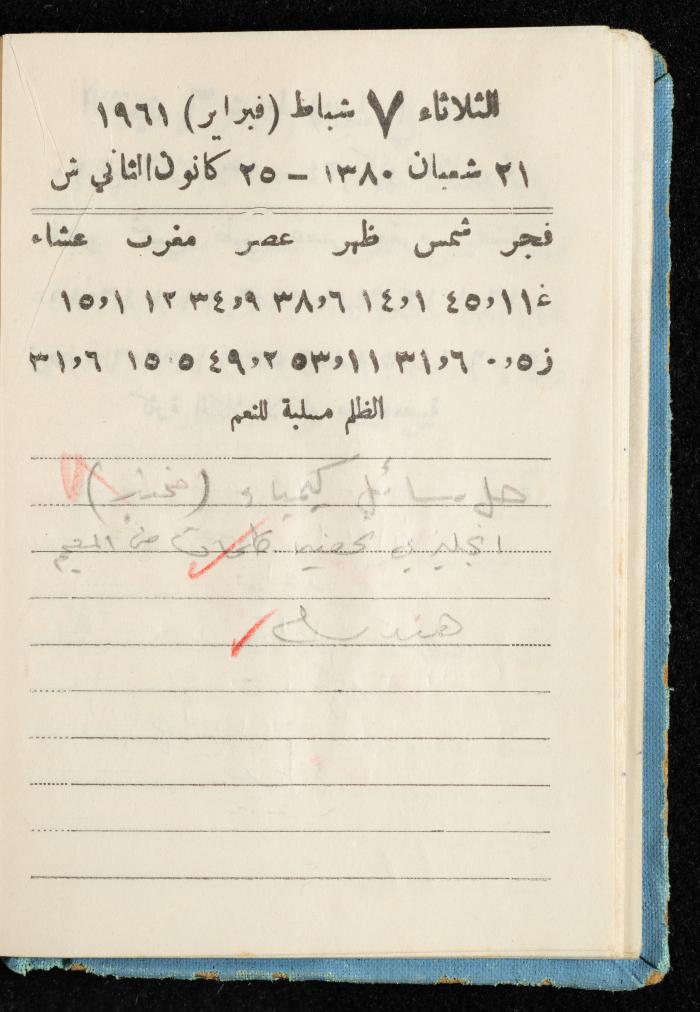 الثلاثاء ٧ شباط (فبراير) ١٩٦١
٢١ شعبان ١٣٨٠ – ٢٥ كانون الثاني ش
فجر شمس ظهر عصر مغرب عشاء
غ ١١و٤٥ ١و١٤ ٦و٣٨ ٩و٣٤ ١٢ ١و١٥
ز ٥و٠ ٦و٣١ ١١و٥٣ ٢و٤٩ ٥٠١٥ ٦و٣١
الظلم مسلبة للنعم
حل مسائل كيمياء
انجليزي تحضير كلمات من المعجم
هندسة